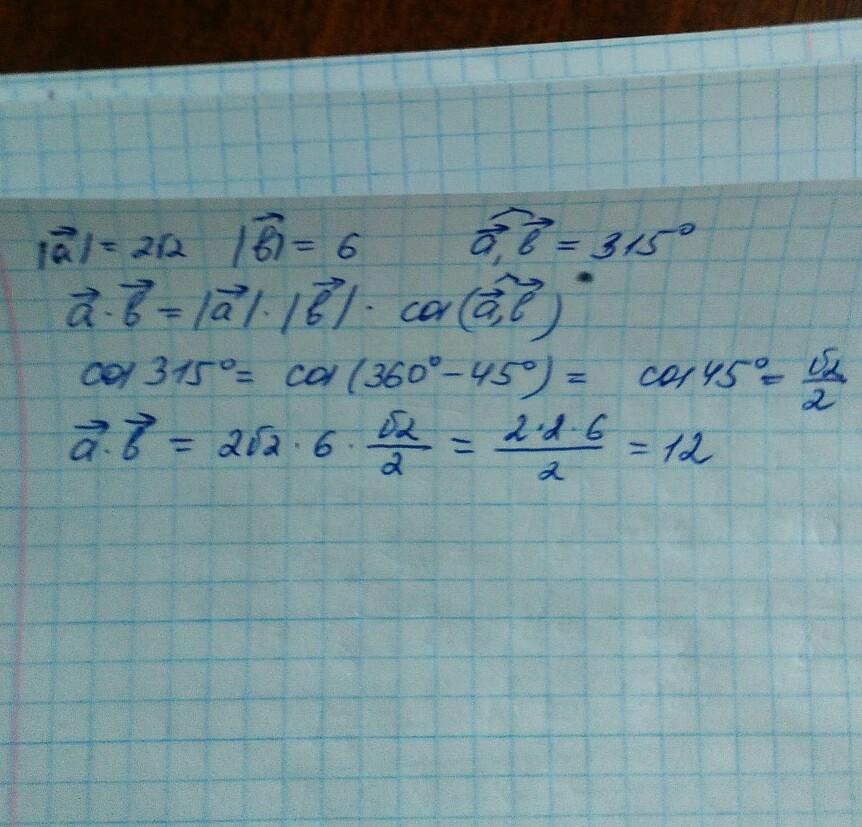 |a⃗| = 2√2 |b⃗| = 6 a⃗,b⃗ = 315°
a⃗ · b⃗ = |a⃗| · |b⃗| · cos(a⃗,b⃗)
cos 315° = cos(360° − 45°) = cos 45° = √2/2
a⃗ · b⃗ = 2√2 · 6 · √2/2 = 2·2·6/2 = 12